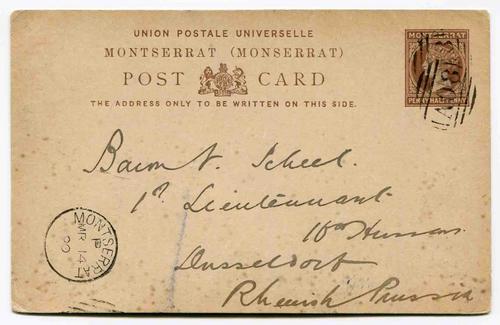 UNION POSTALE UNIVERSELLE
MONTSERRAT (MONSERRAT)
POST CARD
THE ADDRESS ONLY TO BE WRITTEN ON THIS SIDE.
MONTSERRAT
PENNY HALFPENNY
Baron V. Scheel
1st Lieutennant
Hussars
Dusseldorf
Rhenish Prussia
MONTSERRAT
MR 14